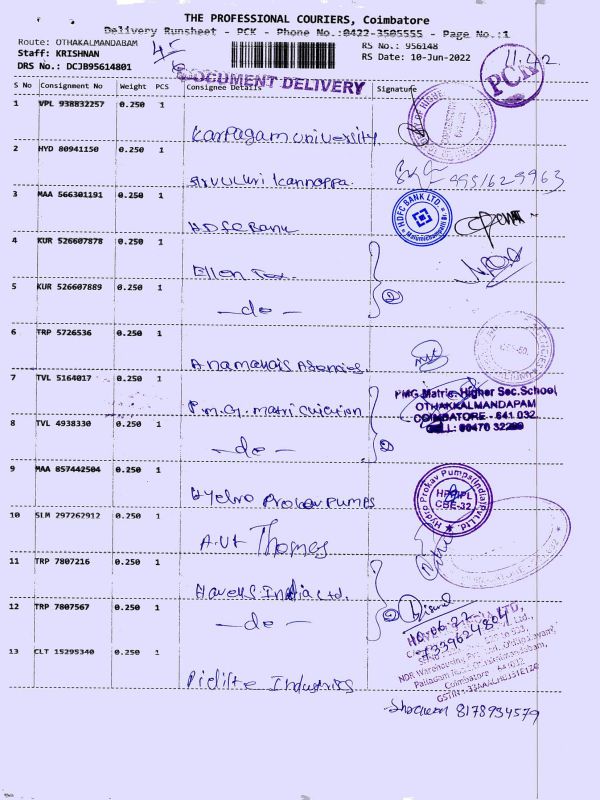 THE PROFESSIONAL COURIERS, Coimbatore
Delivery Runsheet - PCK - Phone No.:0422-3505555 - Page No.:1
Route: OTHAKALMANDABAM
RS No.: 956148
Staff: KRISHNAN
RS Date: 10-Jun-2022
DRS No.: DCJB95614801
DOCUMENT DELIVERY
PCK
11.42
S No Consignment No Weight PCS Consignee Details Signature
1 VPL 938832257 0.250 1
Karpagam University
2 HYD 80941150 0.250 1
Kannappa
3 MAA 566301191 0.250 1
HDFC BANK LTD.
HDFC Bank
4 KUR 526607878 0.250 1
Ellen
5 KUR 526607889 0.250 1
- do -
2
6 TRP 5726536 0.250 1
7 TVL 5164017 0.250 1
PMG Matric. Higher Sec. School
OTHAKKALMANDAPAM
COIMBATORE - 641 032.
P.M.G. matriculation
8 TVL 4938330 0.250 1
- do -
2
9 MAA 857442504 0.250 1
Hydro Prokav Pumps(India)Pvt.Ltd.
HPPIPL
CBE-32
Hydro Prokav Pumps
10 SLM 297262912 0.250 1
A.V. Thomas
11 TRP 7807216 0.250 1
Havells India Ltd.
12 TRP 7807567 0.250 1
- do -
2
7339624804
NDR Warehousing Pvt. Ltd.,
Coimbatore
13 CLT 15295340 0.250 1
Pidilite Industries
8178934579